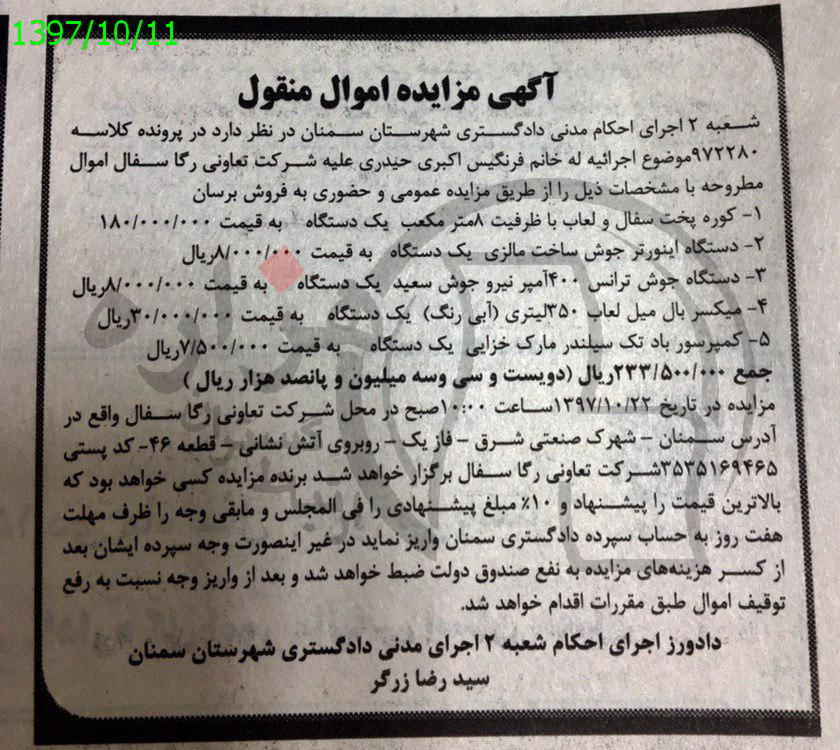 1397/10/11
آگهی مزایده اموال منقول
شعبه ۲ اجرای احکام مدنی دادگستری شهرستان سمنان در نظر دارد در پرونده کلاسه
۹۷۲۲۸۰موضوع اجرائیه له خانم فرنگیس اکبری حیدری علیه شرکت تعاونی رگا سفال اموال
مطروحه با مشخصات ذیل را از طریق مزایده عمومی و حضوری به فروش برسان
۱- کوره پخت سفال و لعاب با ظرفیت ۸متر مکعب یک دستگاه به قیمت ۱۸۰/۰۰۰/۰۰۰
۲- دستگاه اینورتر جوش ساخت مالزی یک دستگاه به قیمت ۸/۰۰۰/۰۰۰ریال
۳- دستگاه جوش ترانس ۴۰۰آمپر نیرو جوش سعید یک دستگاه به قیمت ۸/۰۰۰/۰۰۰ریال
۴- میکسر بال میل لعاب ۳۵۰لیتری (آبی رنگ) یک دستگاه به قیمت ۳۰/۰۰۰/۰۰۰ریال
۵- کمپرسور باد تک سیلندر مارک خزایی یک دستگاه به قیمت ۷/۵۰۰/۰۰۰ریال
جمع ۲۳۳/۵۰۰/۰۰۰ریال (دویست و سی وسه میلیون و پانصد هزار ریال )
مزایده در تاریخ ۱۳۹۷/۱۰/۲۲ساعت ۱۰:۰۰صبح در محل شرکت تعاونی رگا سفال واقع در
آدرس سمنان - شهرک صنعتی شرق - فاز یک - روبروی آتش نشانی - قطعه ۴۶- کد پستی
۳۵۳۵۱۶۹۴۶۵شرکت تعاونی رگا سفال برگزار خواهد شد برنده مزایده کسی خواهد بود که
بالاترین قیمت را پیشنهاد و ۱۰٪ مبلغ پیشنهادی را فی المجلس و مابقی وجه را ظرف مهلت
هفت روز به حساب سپرده دادگستری سمنان واریز نماید در غیر اینصورت وجه سپرده ایشان بعد
از کسر هزینه‌های مزایده به نفع صندوق دولت ضبط خواهد شد و بعد از واریز وجه نسبت به رفع
توقیف اموال طبق مقررات اقدام خواهد شد.
دادورز اجرای احکام شعبه ۲ اجرای مدنی دادگستری شهرستان سمنان
سید رضا زرگر